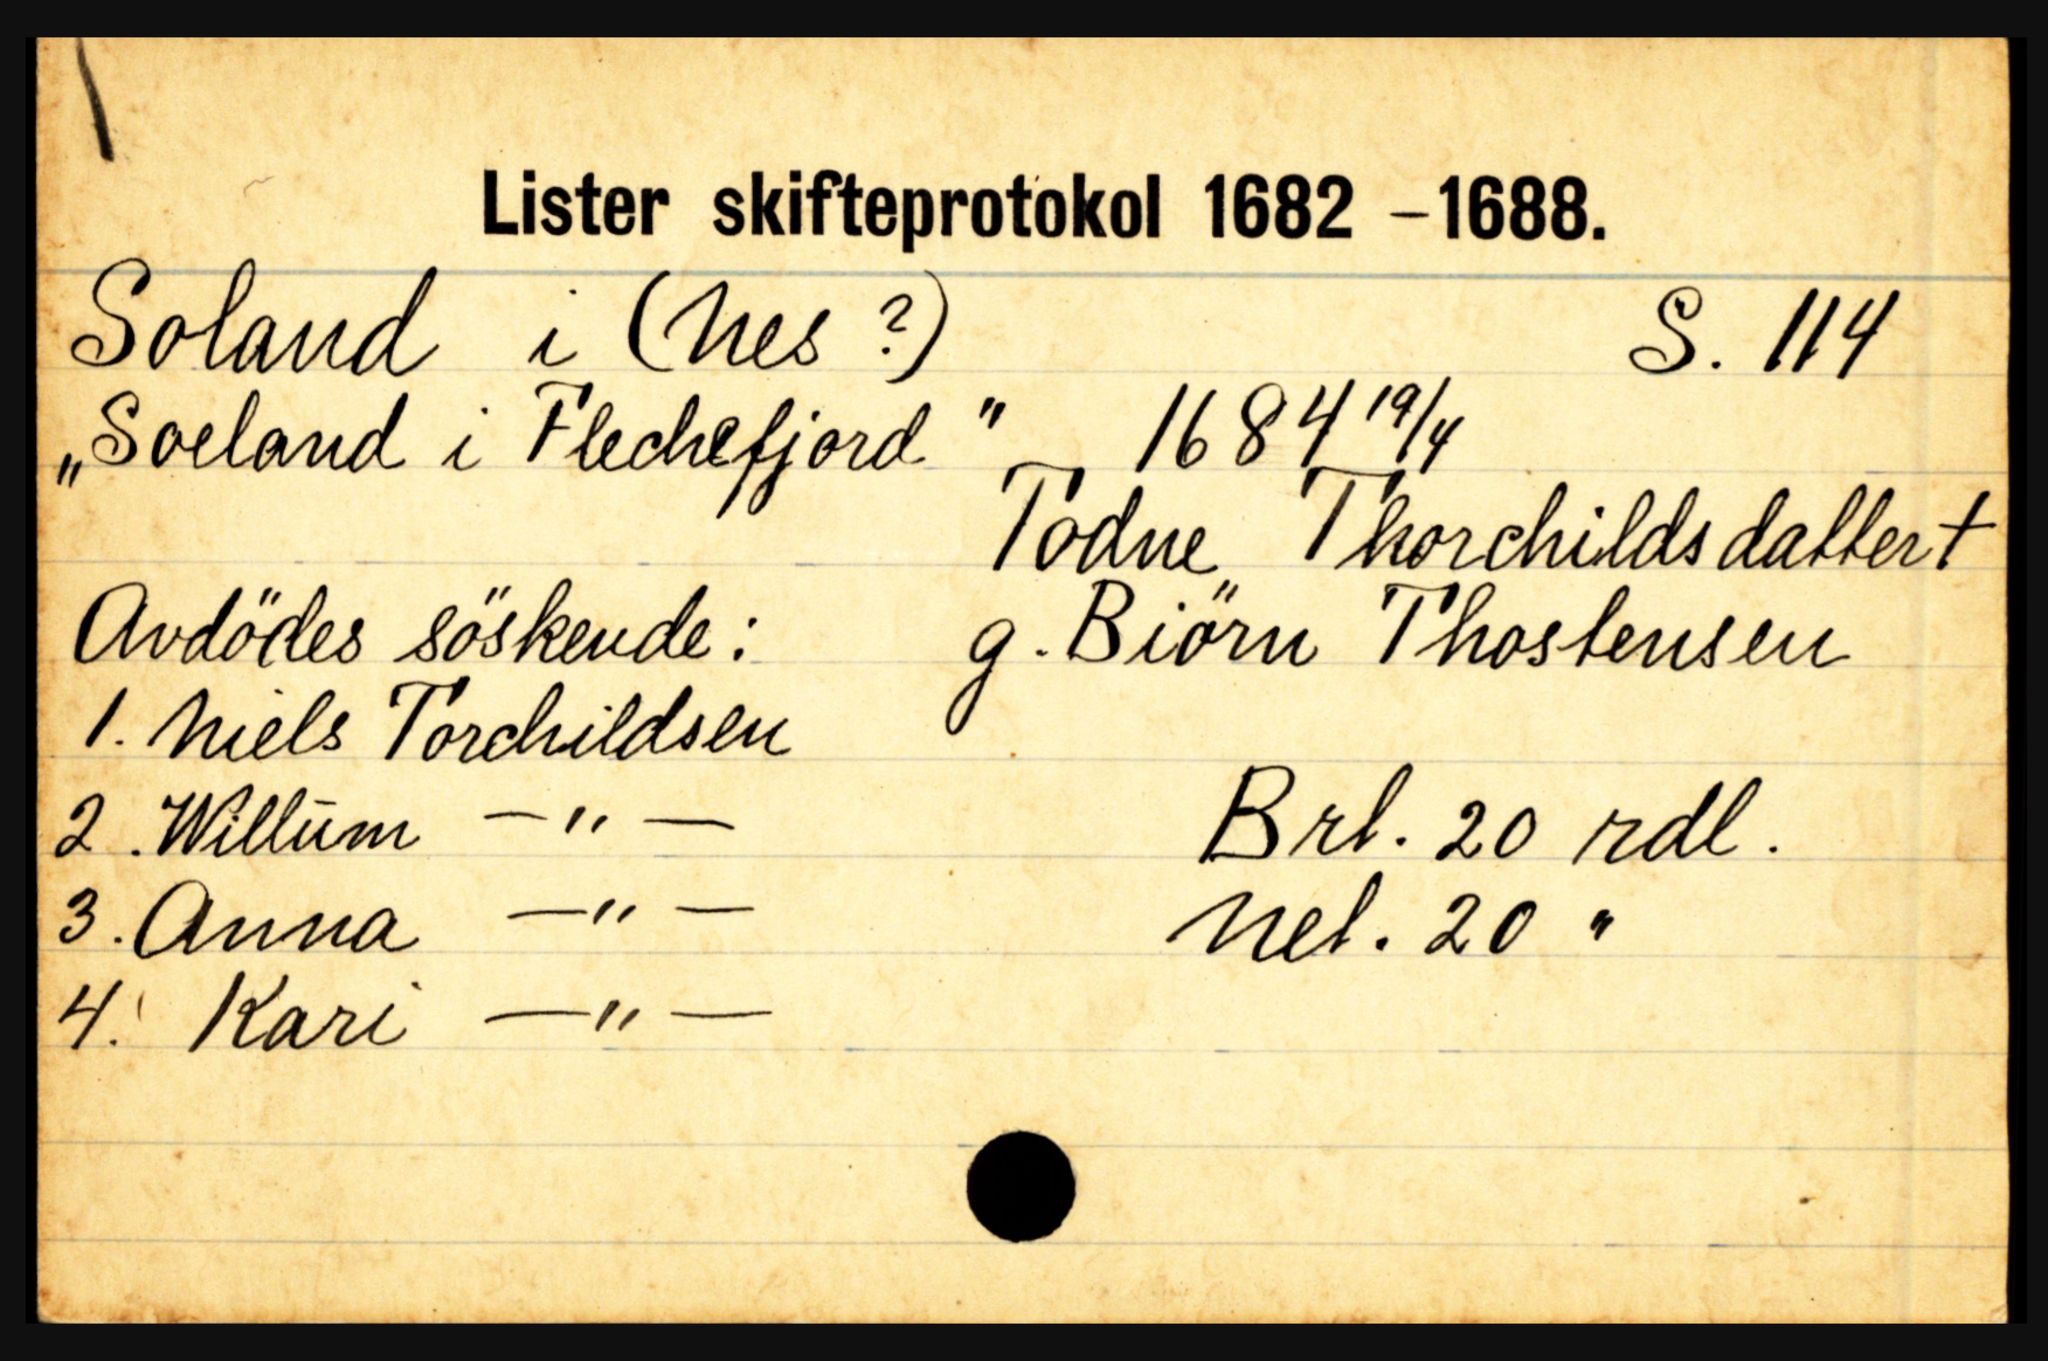 Lister skifteprotokol 1682 - 1688.
Soland i (Nes ?) S. 114
„Soeland i Flechefjord" 1684 19/4
Todne Thorchildsdatter †
Avdödes söskende: g. Biörn Thostensen
1. Niels Torchildsen
2. Willūm —„— Brl. 20 rdl.
3. Anna —„— Nel. 20 "
4. Kari —„—